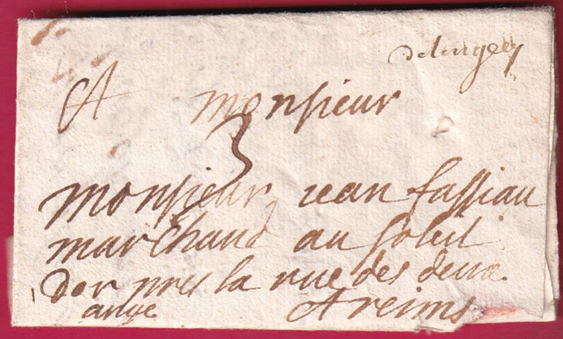 delurgey
A monsieur
3
monsieur jean fassiau
marchand au soleil
dor pres la rue des deux
ange Areims